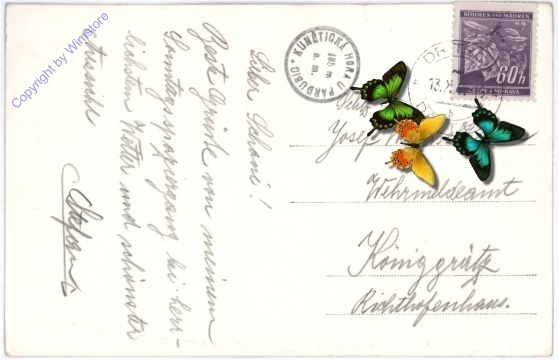 Copyright by WinStore
Lieber Schani!
Beste Grüße von meinem
Sonntagsspaziergang bei herr-
lichstem Wetter und schönster
Stefan
KUNĚTICKÁ HORA U PARDUBIC
305 m
n. m.
BÖHMEN UND MÄHREN
60 h
A MORAVA
13.X
Josef
Wehrmeldeamt
Königgrätz
Richthofenhaus.